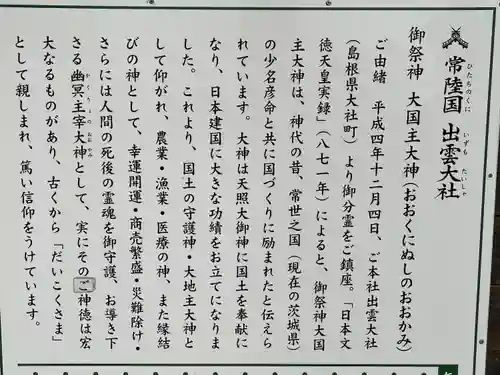 常陸国 出雲大社
ひたちのくに いずも たいしゃ
御祭神 大国主大神(おおくにぬしのおおかみ)
ご由緒 平成四年十二月四日、ご本社出雲大社
(島根県大社町)より御分霊をご鎮座。「日本文
徳天皇実録」(八七一年)によると、御祭神大国
主大神は、神代の昔、常世之国(現在の茨城県)
の少名彦命と共に国づくりに励まれたと伝えら
れています。大神は天照大御神に国土を奉献に
なり、日本建国に大きな功績をお立てになりま
した。これより、国土の守護神・大地主大神と
して仰がれ、農業・漁業・医療の神、また縁結
びの神として、幸運開運・商売繁盛・災難除け・
さらには人間の死後の霊魂を御守護、お導き下
さる幽冥主宰大神として、実にそのご神徳は宏
かくりよのおおかみ
大なるものがあり、古くから「だいこくさま」
として親しまれ、篤い信仰をうけています。